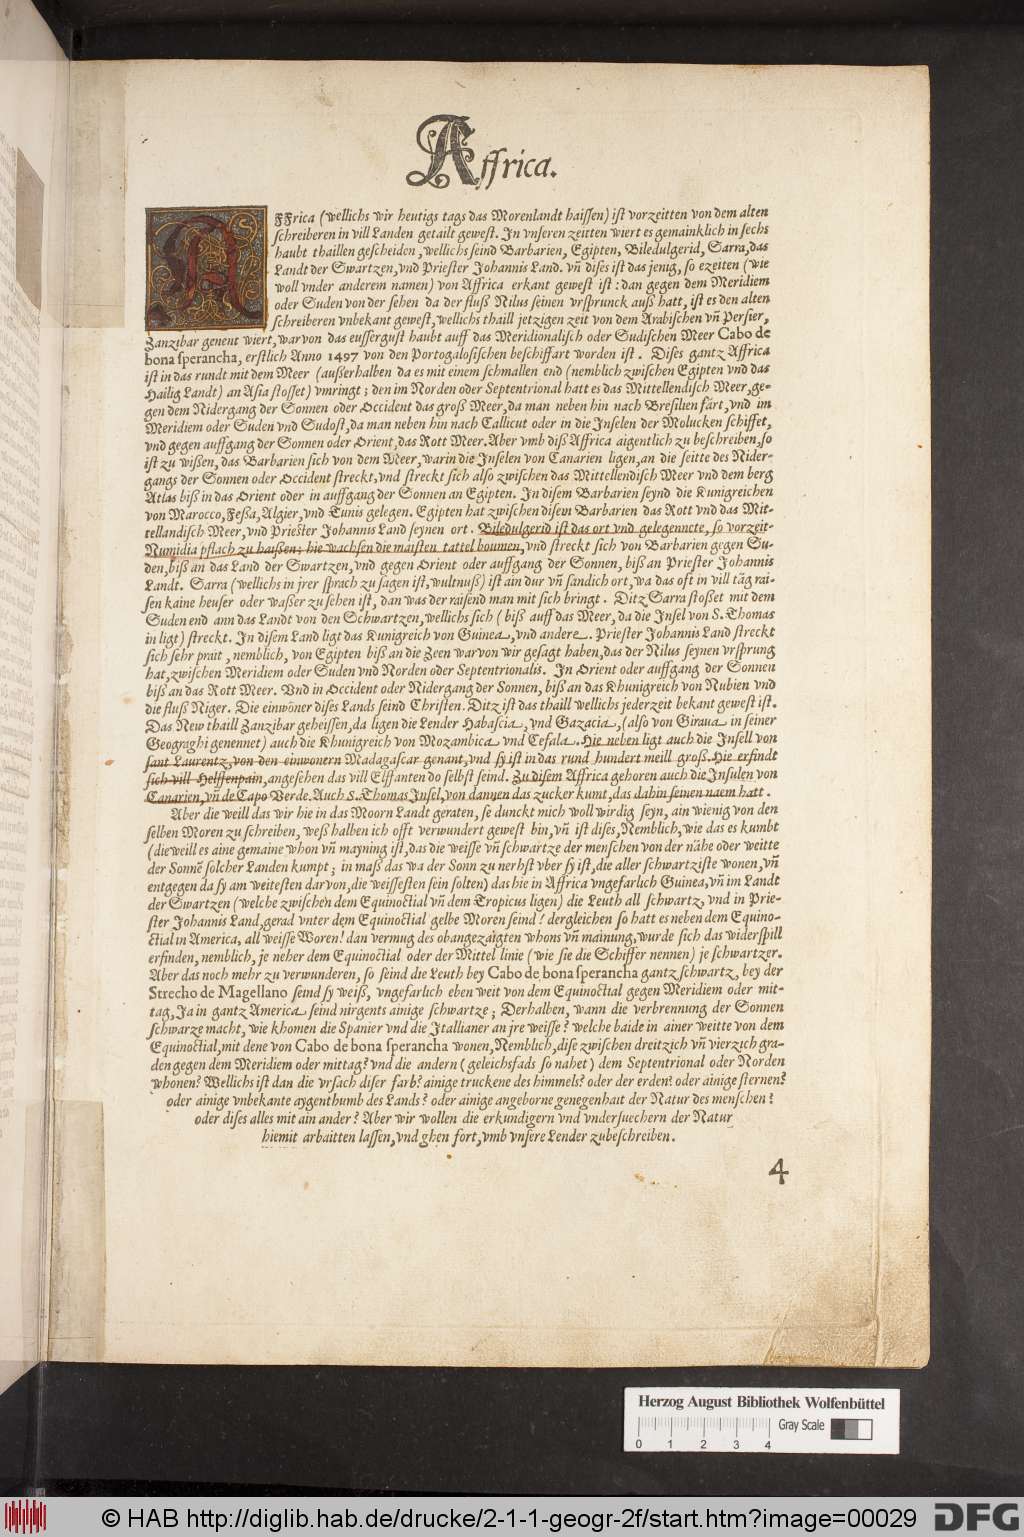 Affrica.
AFFrica (wellichs wir heutigs tags das Morenlandt haissen) ist vorzeitten von dem alten
schreiberen in vill Landen getailt gewest. In vnseren zeitten wiert es gemainklich in sechs
haubt thaillen gescheiden, wellichs seind Barbarien, Egipten, Biledulgerid, Sarra, das
Landt der Swartzen, vnd Priester Johannis Land. vn̄ dises ist das jenig, so ezeiten (wie
woll vnder anderem namen) von Affrica erkant gewest ist: dan gegen dem Meridiem
oder Suden von der sehen da der fluß Nilus seinen vrsprunck auß hatt, ist es den alten
schreiberen vnbekant gewest, wellichs thaill jetzigen zeit von dem Arabischen vn̄ Persier,
Zanzibar genent wiert, war von das eussergust haubt auff das Meridionalisch oder Sudischen Meer Cabo de
bona sperancha, erstlich Anno 1497 von den Portogalosischen beschiffart worden ist. Dises gantz Affrica
ist in das rundt mit dem Meer (außerhalben da es mit einem schmallen end (nemblich zwischen Egipten vnd das
Hailig Landt) an Asia stosset) vmringt; den im Norden oder Septentrional hatt es das Mittellendisch Meer, ge=
gen dem Nidergang der Sonnen oder Occident das groß Meer, da man neben hin nach Bresilien färt, vnd im
Meridiem oder Suden vnd Sudost, da man neben hin nach Callicut oder in die Inselen der Molucken schiffet,
vnd gegen auffgang der Sonnen oder Orient, das Rott Meer. Aber vmb diß Affrica aigentlich zu beschreiben, so
ist zu wißen, das Barbarien sich von dem Meer, warin die Inselen von Canarien ligen, an die seitte des Nider-
gangs der Sonnen oder Occident streckt, vnd streckt sich also zwischen das Mittellendisch Meer vnd dem berg
Atlas biß in das Orient oder in auffgang der Sonnen an Egipten. In disem Barbarien seynd die Kunigreichen
von Marocco, Feßa, Algier, vnd Tunis gelegen. Egipten hat zwischen disem Barbarien das Rott vnd das Mit-
tellandisch Meer, vnd Priester Johannis Land seynen ort. Biledulgerid ist das ort vnd gelegenncte, so vorzeit-
Numidia pflach zu haißen; hie wachsen die maisten tattel boumen, vnd streckt sich von Barbarien gegen Su-
den, biß an das Land der Swartzen, vnd gegen Orient oder auffgang der Sonnen, biß an Priester Johannis
Landt. Sarra (wellichs in jrer sprach zu sagen ist, wultnuß) ist ain dur vn̄ sandich ort, wa das oft in vill täg rai-
sen kaine heuser oder waßer zu sehen ist, dan was der raisend man mit sich bringt. Ditz Sarra stoßet mit dem
Suden end ann das Landt von den Schwartzen, wellichs sich (biß auff das Meer, da die Insel von S. Thomas
in ligt) streckt. In disem Land ligt das Kunigreich von Guinea, vnd andere. Priester Johannis Land streckt
sich sehr prait, nemblich, von Egipten biß an die Zeen war von wir gesagt haben, das der Nilus seynen vrsprung
hat, zwischen Meridiem oder Suden vnd Norden oder Septentrionalis. In Orient oder auffgang der Sonnen
biß an das Rott Meer. Vnd in Occident oder Nidergang der Sonnen, biß an das Khunigreich von Nubien vnd
die fluß Niger. Die einwöner dises Lands seind Christen. Ditz ist das thaill wellichs jederzeit bekant gewest ist.
Das New thaill Zanzibar geheissen, da ligen die Lender Habascia, vnd Gazacia, (also von Giraua in seiner
Geograghi genennet) auch die Khunigreich von Mozambica vnd Cefala. Hie neben ligt auch die Insell von
sant Laurentz, von den einwonern Madagascar genant, vnd sy ist in das rund hundert meill groß. Hie erfindt
sich vill Helffenpain, angesehen das vill Elffanten do selbst seind. Zu disem Affrica gehoren auch die Insulen von
Canarien, vn̄ de Capo Verde. Auch S. Thomas Insel, von dannen das zucker kumt, das dahin seinen naem hatt.
Aber die weill das wir hie in das Moorn Landt geraten, se dunckt mich woll wirdig seyn, ain wienig von den
selben Moren zu schreiben, weß halben ich offt verwundert gewest bin, vn̄ ist dises, Nemblich, wie das es kumbt
(die weill es aine gemaine whon vn̄ mayning ist, das die weisse vn̄ schwartze der menschen von der nähe oder weitte
der Sonn̄ solcher Landen kumpt; in maß das wa der Sonn zu nerhst vber sy ist, die aller schwartziste wonen, vn̄
entgegen da sy am weitesten dar von, die weissesten sein solten) das hie in Affrica vngefarlich Guinea, vn̄ im Landt
der Swartzen (welche zwischen dem Equinoctial vn̄ dem Tropicus ligen) die Leuth all schwartz, vnd in Prie-
ster Johannis Land, gerad vnter dem Equinoctial gelbe Moren seind! dergleichen so hatt es neben dem Equino-
ctial in America, all weisse Woren! dan vermug des obangezaigten whons vn̄ mainung, wurde sich das widerspill
erfinden, nemblich, je neher dem Equinoctial oder der Mittel linie (wie sie die Schiffer nennen) je schwartzer.
Aber das noch mehr zu verwunderen, so seind die Leuth bey Cabo de bona sperancha gantz schwartz, bey der
Strecho de Magellano seind sy weiß, vngefarlich eben weit von dem Equinoctial gegen Meridiem oder mit-
tag, Ja in gantz America seind nirgents ainige schwartze; Derhalben, wann die verbrennung der Sonnen
schwarze macht, wie khomen die Spanier vnd die Itallianer an jre weisse? welche baide in ainer weitte von dem
Equinoctial, mit dene von Cabo de bona sperancha wonen, Nemblich, dise zwischen dreitzich vn̄ vierzich gra-
den gegen dem Meridiem oder mittag? vnd die andern (geleichsfads so nahet) dem Septentrional oder Norden
whonen? Wellichs ist dan die vrsach diser farb? ainige truckene des himmels? oder der erden? oder ainige sternen?
oder ainige vnbekante aygenthumb des Lands? oder ainige angeborne genegenhait der Natur des menschen?
oder dises alles mit ain ander? Aber wir wollen die erkundigern vnd vndersuechern der Natur
hiemit arbaitten lassen, vnd ghen fort, vmb vnsere Lender zubeschreiben.
4
Herzog August Bibliothek Wolfenbüttel
Gray Scale
0 1 2 3 4
© HAB http://diglib.hab.de/drucke/2-1-1-geogr-2f/start.htm?image=00029
DFG